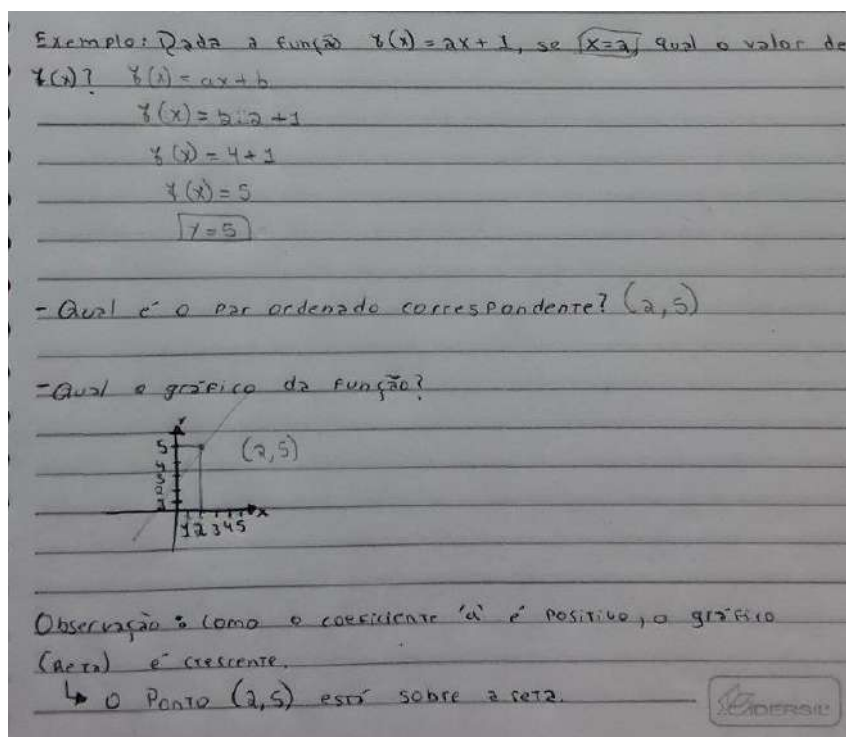 Exemplo: Dada a função f(x) = 2x + 1, se x=2, qual o valor de
f(x)? f(x) = ax + b
f(x) = 2.2 + 1
f(x) = 4 + 1
f(x) = 5
y = 5
- Qual é o par ordenado correspondente? (2,5)
- Qual o gráfico da função?
y
5 (2,5)
4
3
2
1
x
1 2 3 4 5
Observação: Como o coeficiente 'a' é positivo, o gráfico
(Reta) é crescente.
↳ O Ponto (2,5) está sobre a reta.